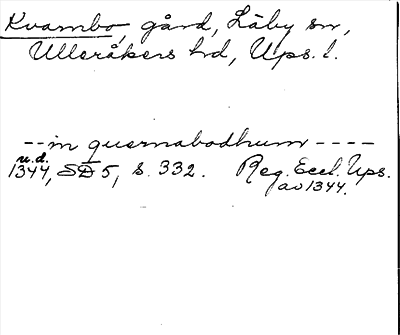 Kvambo, gård, Läby sn,
Ulleråkers hd, Ups. l.
-- in quernabodhum ----
u.d.
1344, SD 5, s. 332. Reg. Eccl. Ups.
av 1344.